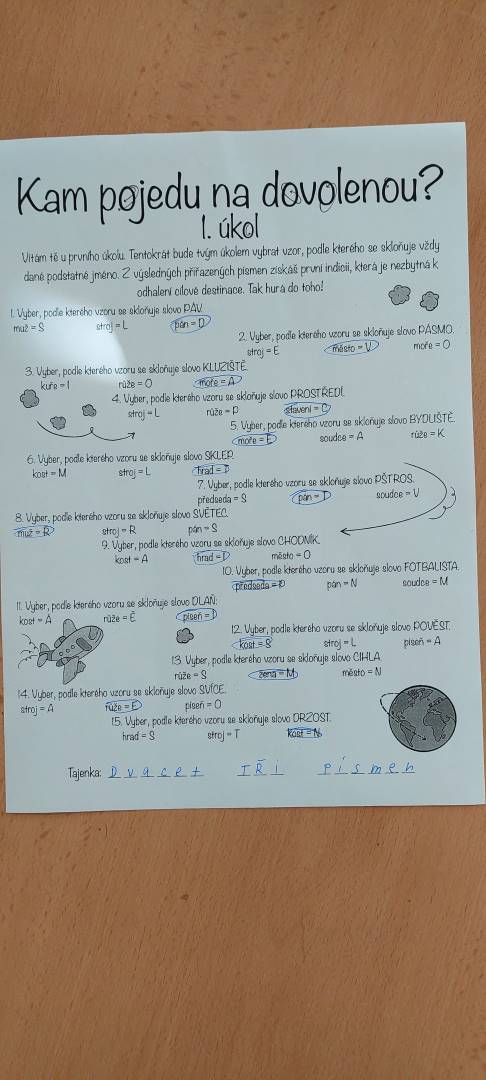 Kam pojedu na dovolenou?
1. úkol
Vítám tě u prvního úkolu. Tentokrát bude tvým úkolem vybrat vzor, podle kterého se skloňuje vždy
dané podstatné jméno. Z výsledných přiřazených písmen získáš první indicii, která je nezbytná k
odhalení cílové destinace. Tak hurá do toho!
1. Vyber, podle kterého vzoru se skloňuje slovo PÁV.
muž = S stroj = L pán = D
2. Vyber, podle kterého vzoru se skloňuje slovo PÁSMO.
stroj = E město = V moře = O
3. Vyber, podle kterého vzoru se skloňuje slovo KLUZIŠTĚ.
kuře = I růže = O moře = A
4. Vyber, podle kterého vzoru se skloňuje slovo PROSTŘEDÍ.
stroj = L růže = P stavení = C
5. Vyber, podle kterého vzoru se skloňuje slovo BYDLIŠTĚ.
moře = E soudce = A růže = K
6. Vyber, podle kterého vzoru se skloňuje slovo SKLEP.
kost = M stroj = L hrad = T
7. Vyber, podle kterého vzoru se skloňuje slovo PŠTROS.
předseda = S pán = T soudce = V
8. Vyber, podle kterého vzoru se skloňuje slovo SVĚTEC.
muž = Ř stroj = R pán = S
9. Vyber, podle kterého vzoru se skloňuje slovo CHODNÍK.
kost = A hrad = I město = O
10. Vyber, podle kterého vzoru se skloňuje slovo FOTBALISTA.
předseda = P pán = N soudce = M
11. Vyber, podle kterého vzoru se skloňuje slovo DLAŇ.
kost = Á růže = Ě píseň = Í
12. Vyber, podle kterého vzoru se skloňuje slovo POVĚST.
kost = S stroj = L píseň = A
13. Vyber, podle kterého vzoru se skloňuje slovo CIHLA.
růže = S žena = M město = N
14. Vyber, podle kterého vzoru se skloňuje slovo SVÍCE.
stroj = A růže = E píseň = O
15. Vyber, podle kterého vzoru se skloňuje slovo DRZOST.
hrad = S stroj = T kost = N
Tajenka: D v a c e t T Ř i P í s m e n